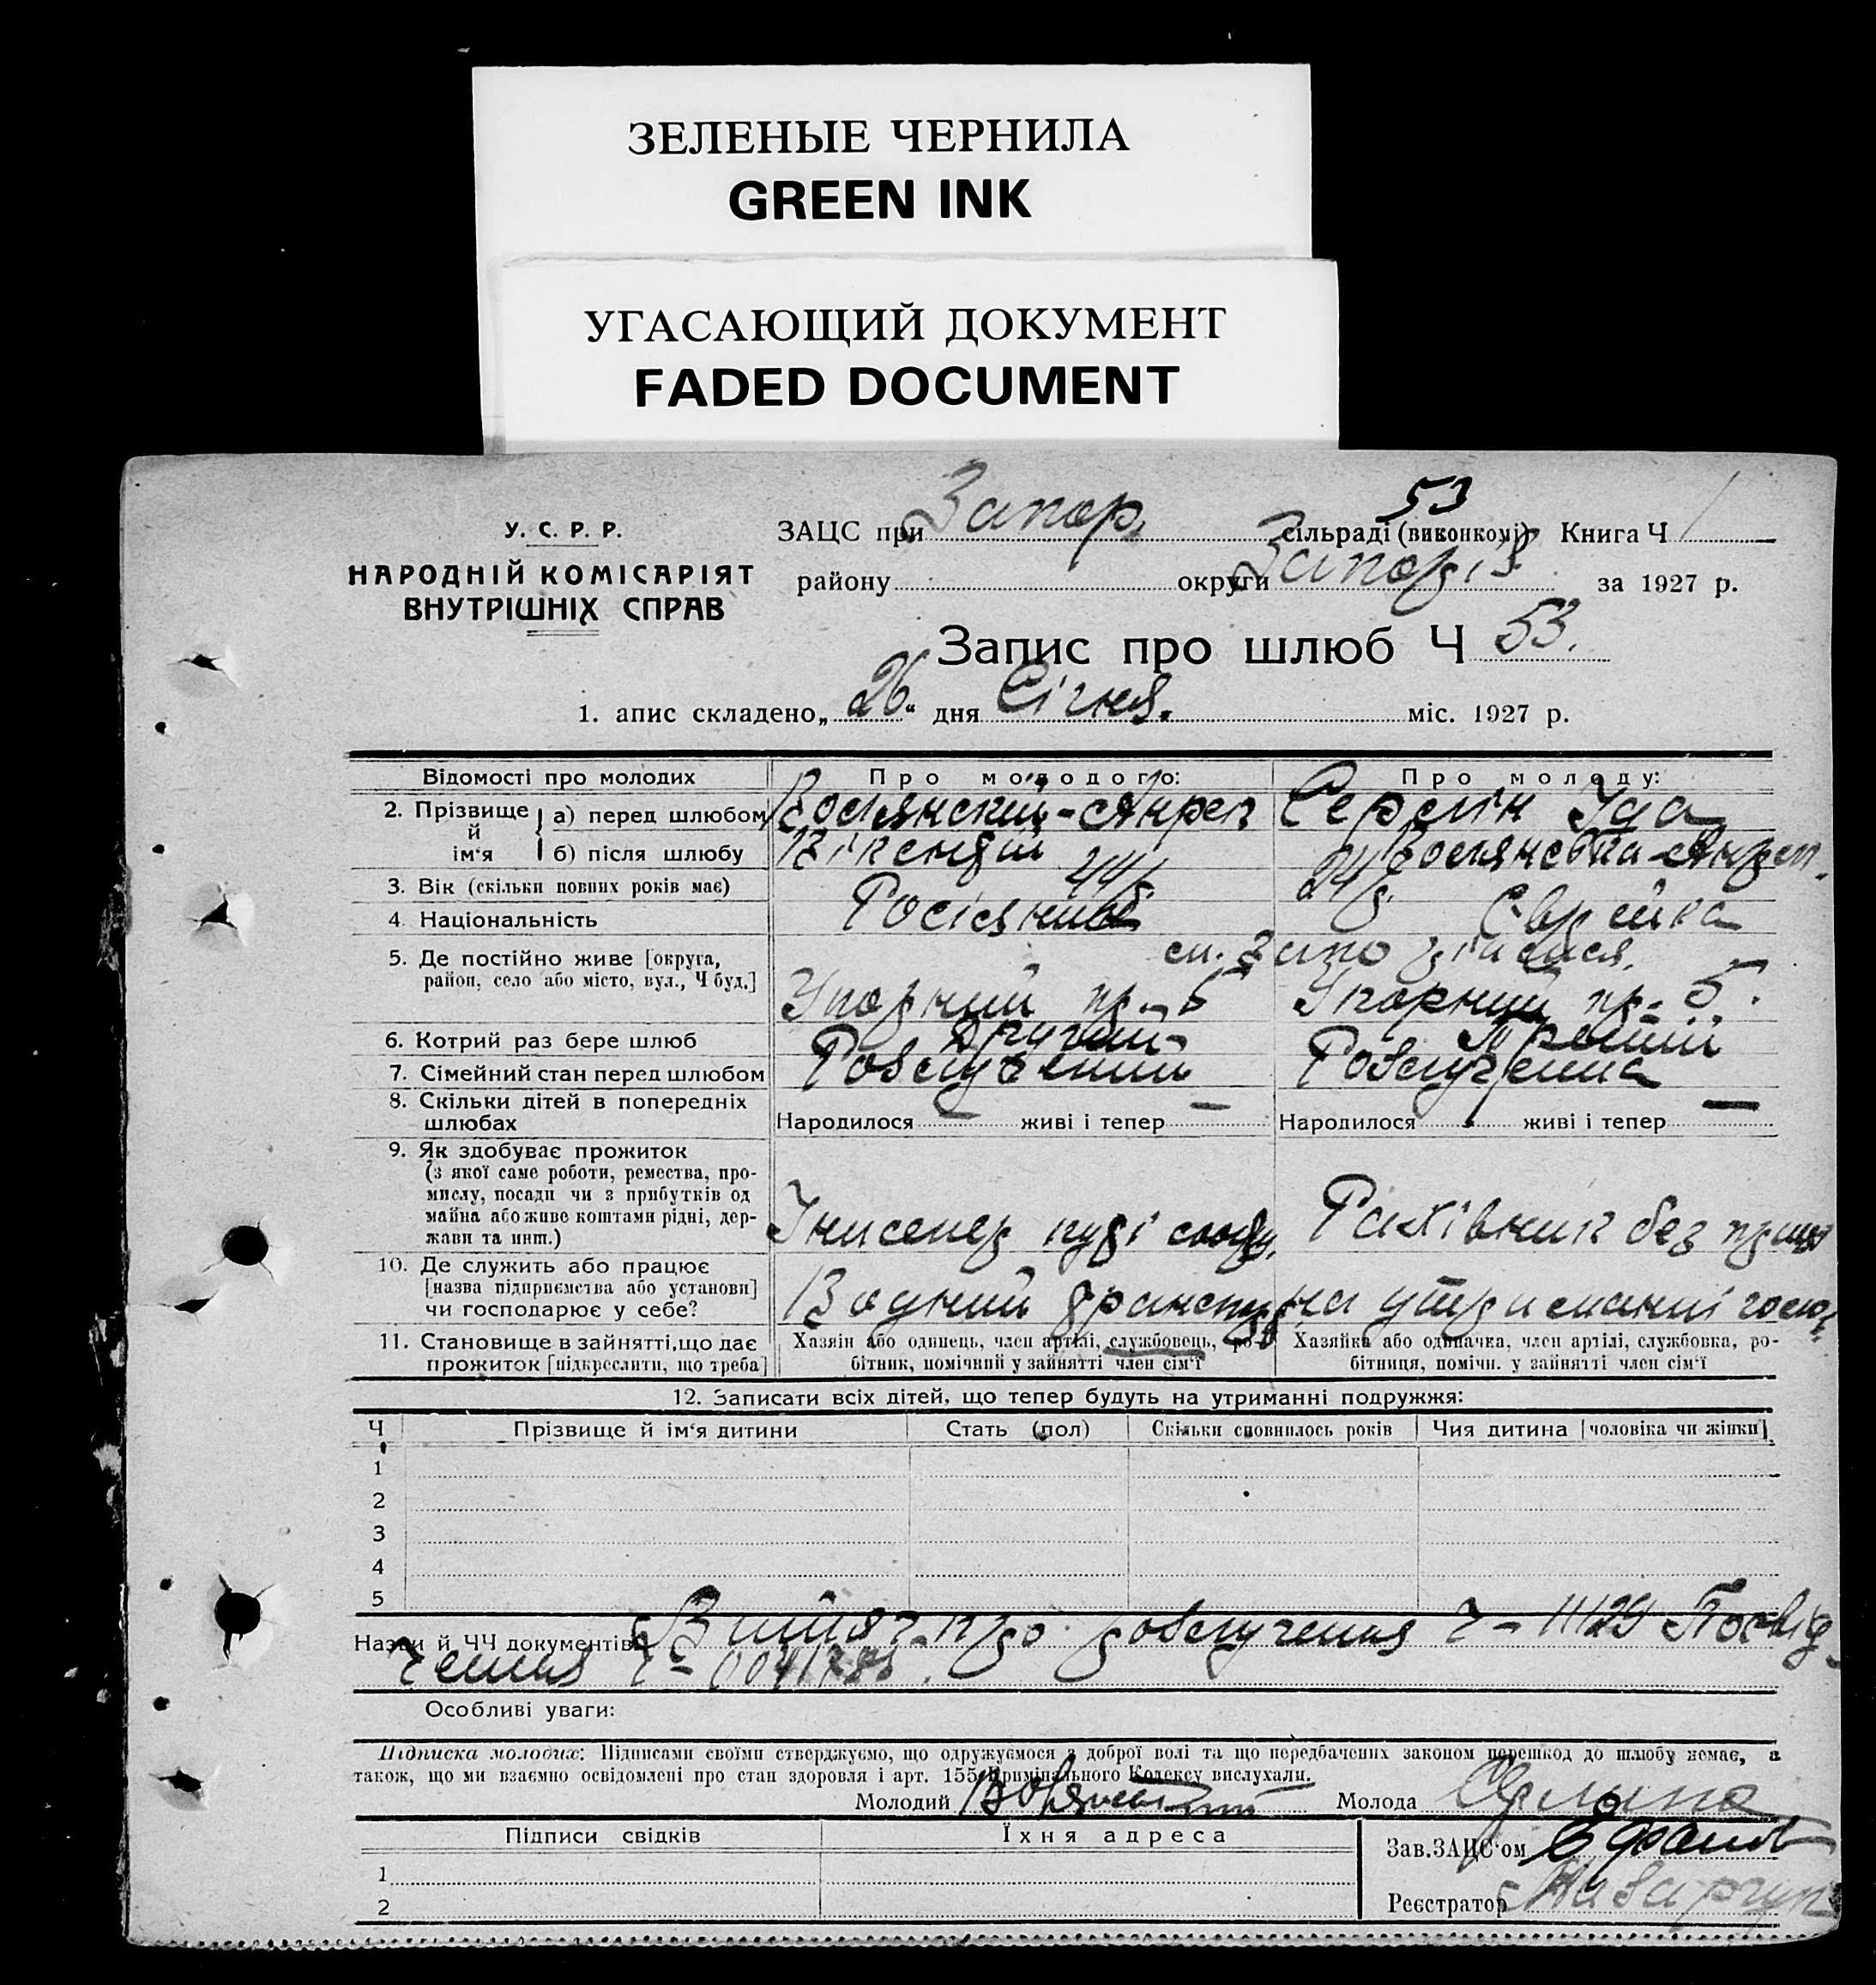 ЗЕЛЕНЫЕ ЧЕРНИЛА
GREEN INK
УГАСАЮЩИЙ ДОКУМЕНТ
FADED DOCUMENT
У. С. Р. Р.
НАРОДНІЙ КОМІСАРІЯТ
ВНУТРІШНІХ СПРАВ
53
ЗАЦС при Запор. сільраді (виконкомі) Книга Ч 1
району округи Запоріз за 1927 р.
Запис про шлюб Ч 53.
1. апис складено „26“ дня Січня. міс. 1927 р.
Відомості про молодих Про молодого: Про молоду:
2. Прізвище й ім'я а) перед шлюбом Серлін Іда
б) після шлюбу Вікентій
3. Вік (скільки повних років має) 44 р. 24 р.
4. Національність Росіянин Єврейка
5. Де постійно живе [округа, район, село або місто, вул., Ч буд.]
м. Запоріжжя,
6. Котрий раз бере шлюб Другий Третій
7. Сімейний стан перед шлюбом Розлучений Розлучена
8. Скільки дітей в попередніх шлюбах Народилося — живі і тепер — Народилося живі і тепер —
9. Як здобуває прожиток
(з якої саме роботи, ремества, промислу, посади чи з прибутків од майна або живе коштами рідні, держави та инш.)
Інженер Рахівник без праці
10. Де служить або працює
[назва підприємства або установи]
чи господарює у себе?
Водний транспорт на утриманні
11. Становище в зайнятті, що дає прожиток [підкреслити, що треба]
Хазяін або одинець, член артілі, службовець, робітник, помічний у зайнятті член сім'ї
Хазяйка або одиначка, член артілі, службовка, робітниця, помічн. у зайнятті член сім'ї
12. Записати всіх дітей, що тепер будуть на утриманні подружжя:
Ч Прізвище й ім'я дитини Стать (пол) Скільки сповнилось років Чия дитина [чоловіка чи жінки]
1
2
3
4
5
Назви й ЧЧ документів: Витяг про розлучення Ч – 11129 Посвід
чення Ч –
Особливі уваги:
Підписка молодих: Підписами своїми стверджуємо, що одружуємося з доброї волі та що передбачених законом перешкод до шлюбу немає, а
також, що ми взаємно освідомлені про стан здоровля і арт. 155 Кримінального Кодексу вислухали.
Молодий Молода
Підписи свідків Їхня адреса Зав. ЗАЦС'ом
1
2 Реєстратор